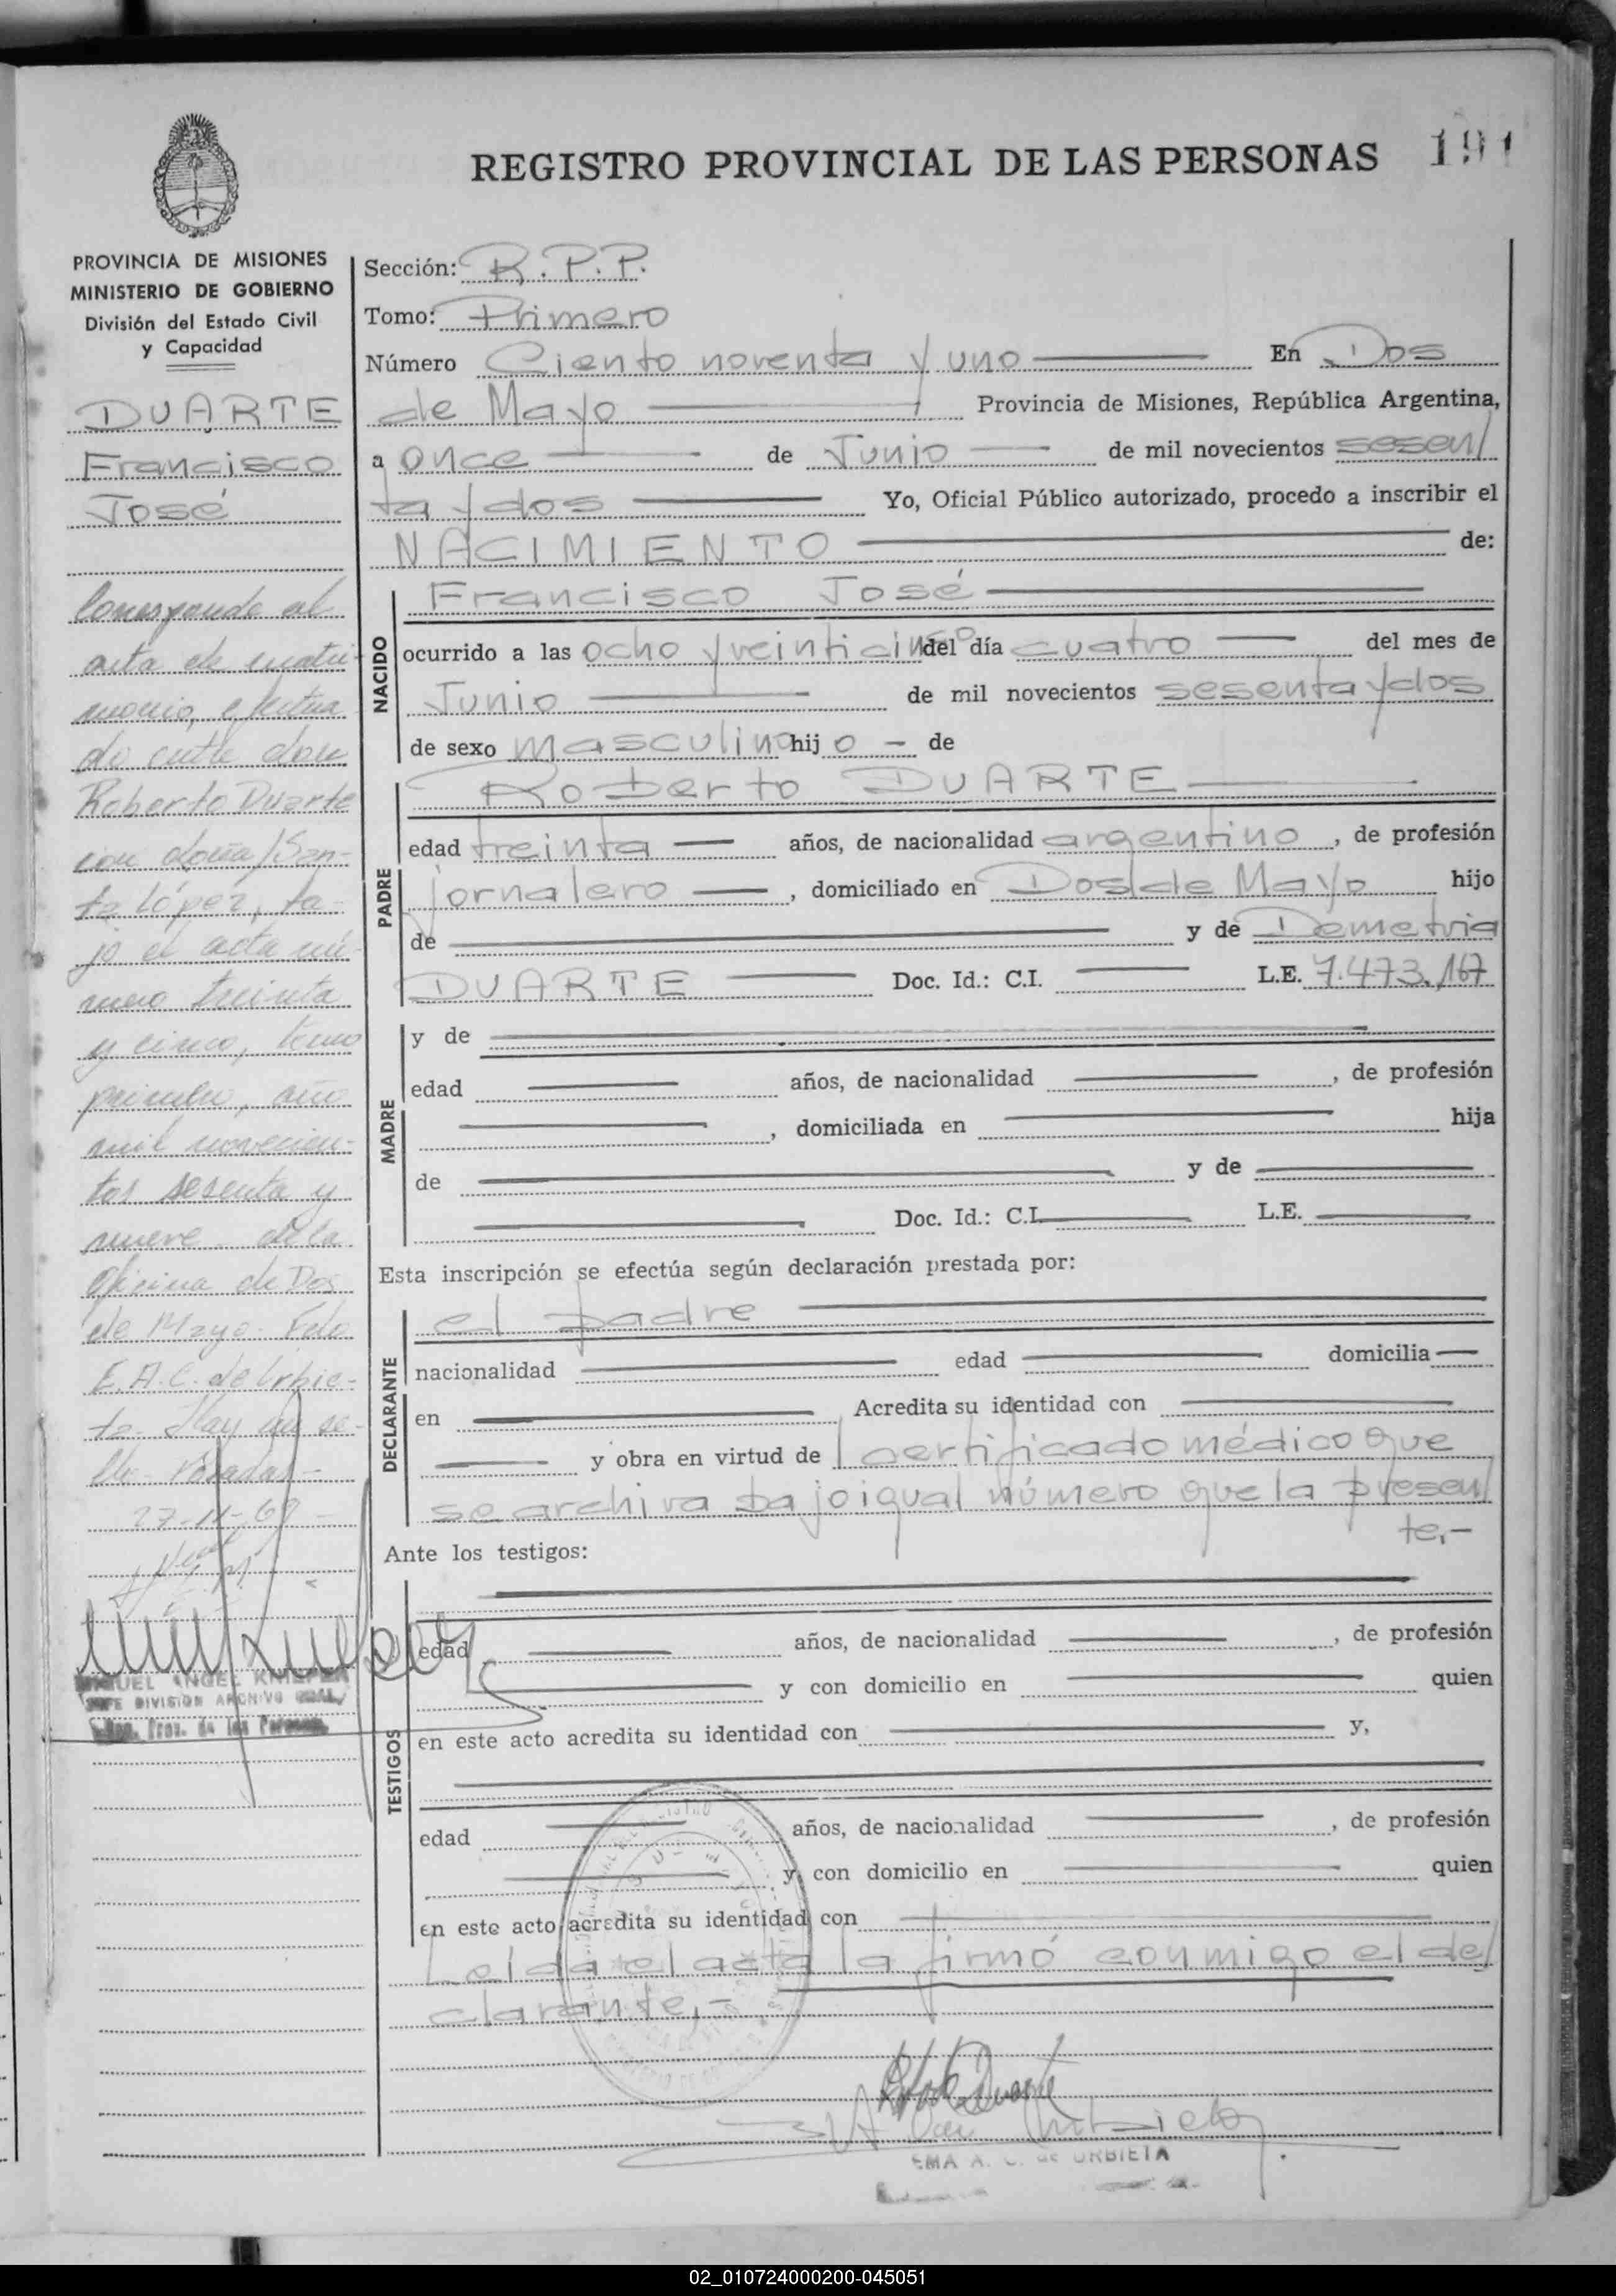 REGISTRO PROVINCIAL DE LAS PERSONAS 191
PROVINCIA DE MISIONES
MINISTERIO DE GOBIERNO
División del Estado Civil
y Capacidad
DUARTE
Francisco
José
Corresponde al
acta de matri-
monio, efectua
do entre don
Roberto Duarte
con doña San-
ta López, ba-
jo el acta nú-
mero treinta
y cinco, tomo
primero, año
mil novecien-
tos sesenta y
nueve de la
Oficina de Dos
de Mayo- Fdo
E.A.C. de Urbie-
ta- Hay un se-
llo- Posadas-
27-11-69-
MIGUEL ANGEL
JEFE DIVISION ARCHIVO GRAL
Reg. Prov. de las Personas
Sección: R.P.P.
Tomo: Primero
Número Ciento noventa y uno En Dos
de Mayo Provincia de Misiones, República Argentina,
a once de Junio de mil novecientos sesen/
ta y dos Yo, Oficial Público autorizado, procedo a inscribir el
NACIMIENTO de:
NACIDO
Francisco José
ocurrido a las ocho y veinticinco del día cuatro del mes de
Junio de mil novecientos sesenta y dos
de sexo masculino hijo - de
PADRE
Roberto DUARTE
edad treinta años, de nacionalidad argentino, de profesión
jornalero, domiciliado en Dos de Mayo hijo
de y de Demetria
DUARTE Doc. Id.: C.I. L.E. 7.473.167
MADRE
y de
edad años, de nacionalidad , de profesión
, domiciliada en hija
de y de
Doc. Id.: C.I. L.E.
Esta inscripción se efectúa según declaración prestada por:
DECLARANTE
el padre
nacionalidad edad domicilia
en Acredita su identidad con
y obra en virtud de certificado médico que
se archiva bajo igual número que la presen/
te.-
Ante los testigos:
TESTIGOS
edad años, de nacionalidad , de profesión
y con domicilio en quien
en este acto acredita su identidad con y,
edad años, de nacionalidad , de profesión
y con domicilio en quien
en este acto acredita su identidad con
Leida el acta la firmó conmigo el de/
clarante,-
EMA A. C. de URBIETA
02_010724000200-045051